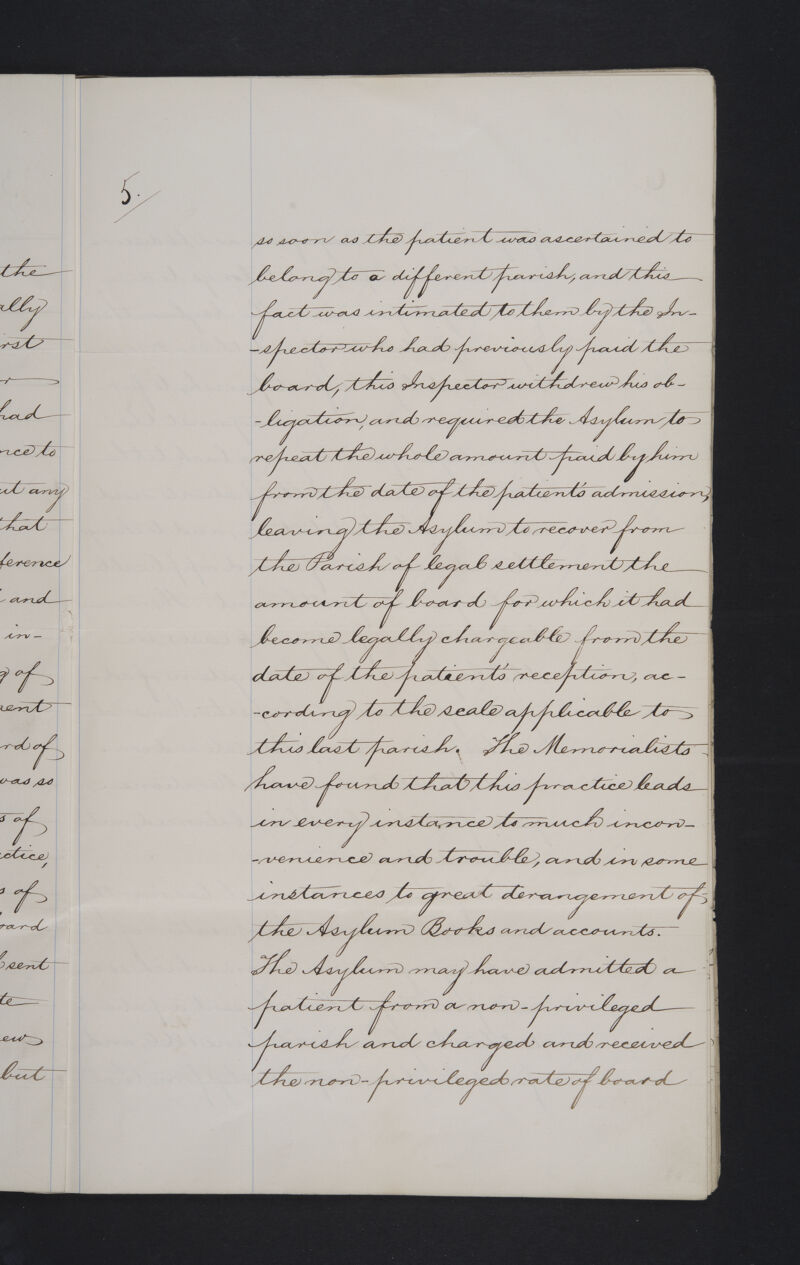 the
ally
rst
r
had
nce to
ut any
that
ference
and
in-
g of
ent
rd of
was so
s of
ctice,
s of
oard
sent
te
ew
but
5.
so soon as the patient was ascertained to
belong to a different parish, and this
fact was intimated to them by the In-
-spector who had previously paid the
board, this Inspector withdrew his ob-
-ligation, and required the Asylum to
repeat the whole amount paid by him
from the date of the patient's admission,
leaving the Asylum to recover from
the Parish of legal settlement the
amount of board for which it had
become legally chargeable from the
date of the patient's reception, ac-
-cording to the scale applicable to
this last parish. The Memorialists
have found that this practice leads
in every instance to much incon-
-venience and trouble, and in some
instances to great derangement of
the Asylum Books and accounts.
The Asylum may have admitted a
patient from a non-privileged
parish and charged and received
the non-privileged rate of board